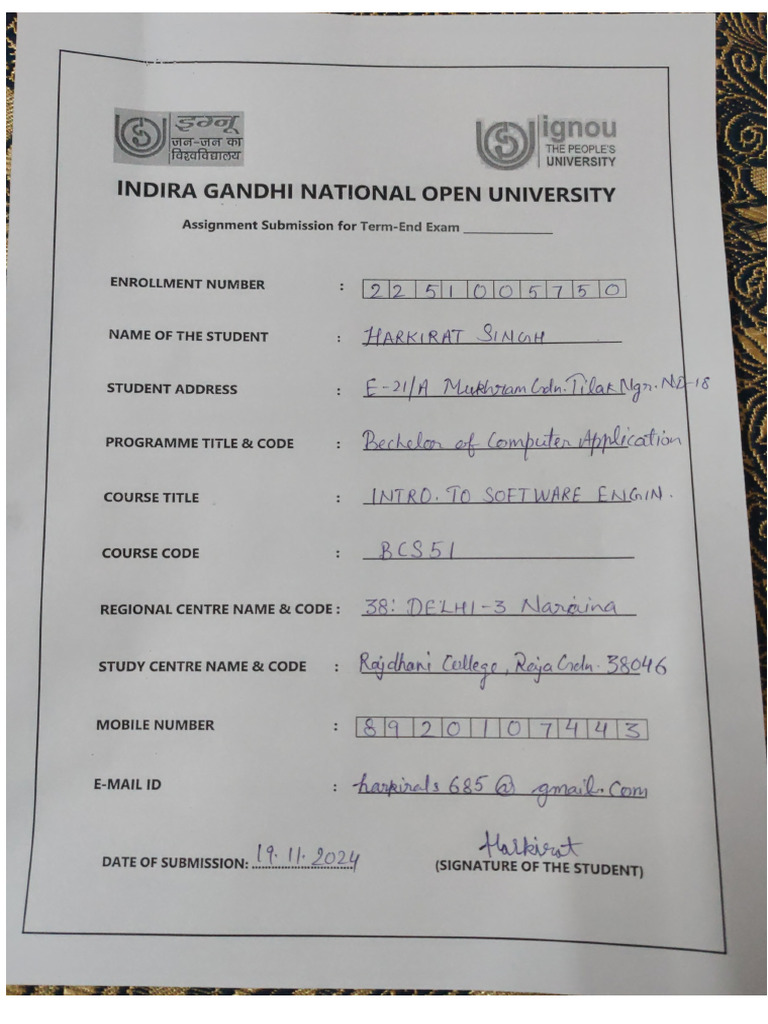 इग्नू
जन-जन का
विश्वविद्यालय
ignou
THE PEOPLE'S
UNIVERSITY
INDIRA GANDHI NATIONAL OPEN UNIVERSITY
Assignment Submission for Term-End Exam ____________
ENROLLMENT NUMBER : 2251005750
NAME OF THE STUDENT : HARKIRAT SINGH
STUDENT ADDRESS : E-21/A Mukhram Gdn. Tilak Ngr. ND-18
PROGRAMME TITLE & CODE : Bechelor of Computer Application
COURSE TITLE : INTRO. TO SOFTWARE ENGIN.
COURSE CODE : BCS51
REGIONAL CENTRE NAME & CODE : 38: DELHI-3 Naraina
STUDY CENTRE NAME & CODE : Rajdhani College, Raja Gdn. 38046
MOBILE NUMBER : 8920107443
E-MAIL ID : harkirals685@gmail.com
DATE OF SUBMISSION: 19.11.2024
Harkirat
(SIGNATURE OF THE STUDENT)